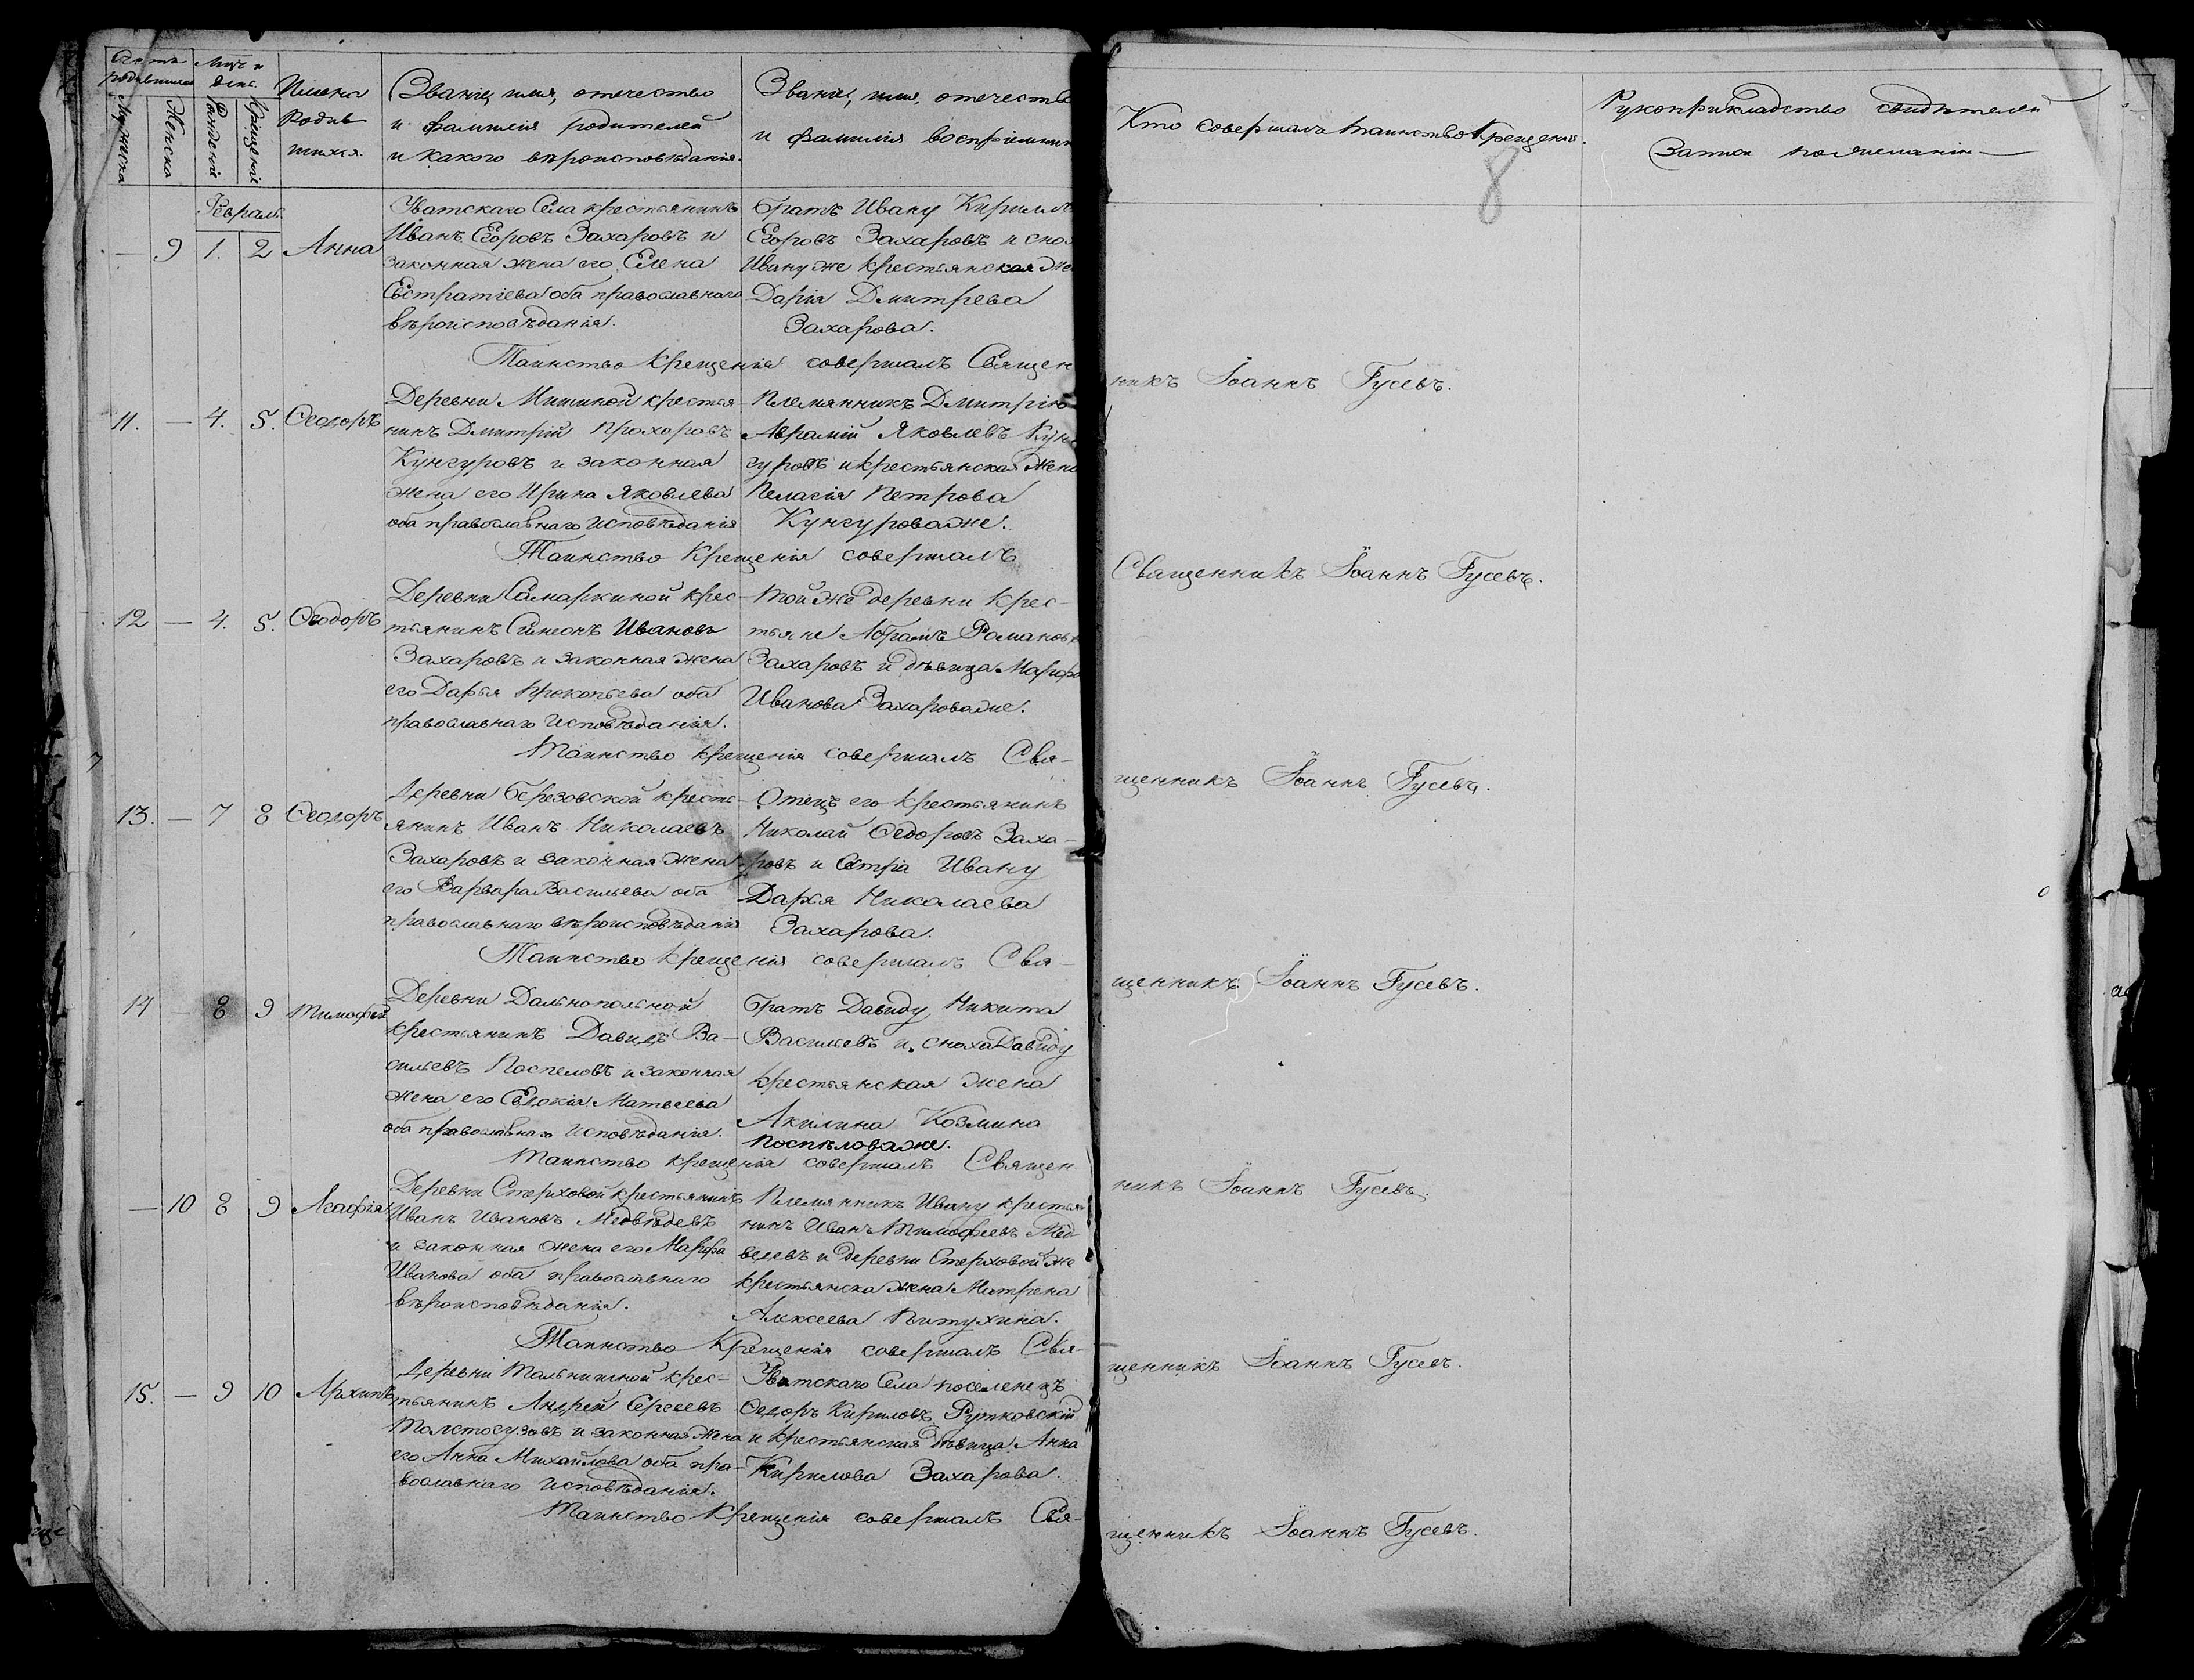 Счетъ родившихся
Мужеска
Женска
Мцъ и день
Рожденія
Крещенія
Имена
Родив
шихся.
Званіе, имя, отечество
и фамилія родителей
и какого вѣроисповѣданія.
Званіе, имя, отечество
и фамилія воспріемник
Кто совершалъ таинство Крещенія.
Рукоприкладство свидѣтелей
Записи по желанію
8
Февраль.
— 9 1. 2 Анна
Уватскаго Села крестьянинъ
Иванъ Егоровъ Захаровъ и
законная жена его Елена
Евстратіева оба православнаго
вѣроисповѣданія.
Братъ Ивану Кириллъ
Егоровъ Захаровъ и сно
Ивану же крестьянская же
Дарія Дмитрева
Захарова.
Таинство крещенія совершалъ Священ
никъ Іоаннъ Гусевъ.
11. — 4. 5. Ѳеодоръ
Деревни Мишиной крестья-
нинъ Дмитрій Прохоровъ
Кунгуровъ и законная
жена его Ирина Яковлева
оба православнаго исповѣданія
Племянникъ Дмитрію
Аврамій Яковлевъ Кун
гуровъ и крестьянская жена
Пелагія Петрова
Кунгурова же.
Таинство Крещенія совершалъ
Священникъ Іоаннъ Гусевъ.
12 — 4. 5. Ѳеодоръ
Деревни Самаркиной крес-
тьянинъ Симеонъ Ивановъ
Захаровъ и законная жена
его Дарья Прокопьева оба
православнаго исповѣданія.
Той же деревни крес-
тьяне Абрамъ Романовъ
Захаровъ и дѣвица Марфа
Иванова Захарова же.
Таинство крещенія совершалъ Свя-
щенникъ Іоаннъ Гусевъ.
13. — 7 8 Ѳеодоръ
Деревни Березовской кресть-
янинъ Иванъ Николаевъ
Захаровъ и законная жена
его Варвара Васильева оба
православнаго вѣроисповѣданія
Отецъ его крестьянинъ
Николай Ѳедоровъ Заха-
ровъ и Сестра Ивану
Дарья Николаева
Захарова.
Таинство крещенія совершалъ Свя-
щенникъ Іоаннъ Гусевъ.
14 — 8 9 Тимофей
Деревни Дальнопольной
крестьянинъ Давидъ Ва-
сильевъ Поспеловъ и законная
жена его Евдокія Матвеева
оба православнаго исповѣданія.
Братъ Давиду Никита
Васильевъ и сноха Давиду
крестьянская жена
Акилина Козмина
Поспѣлова же.
Таинство крещенія совершалъ Священ
никъ Іоаннъ Гусевъ.
— 10 8 9 Агафія
Деревни Стерховой крестьянинъ
Иванъ Ивановъ Медвѣдевъ
и законная жена его Марфа
Иванова оба православнаго
вѣроисповѣданія.
Племянникъ Ивану крестья
нинъ Иванъ Тимофеевъ Мед-
ведевъ и деревни Стерховой же
крестьянска жена Матрена
Алексеева Питухина.
Таинство Крещенія совершалъ Свя-
щенникъ Іоаннъ Гусевъ.
15. — 9 10 Архипъ
Деревни крес-
тьянинъ Андрей Сергеевъ
Толстогузовъ и законная жена
его Анна Михайлова оба пра-
вославнаго исповѣданія.
Уватскаго Села поселенецъ
Ѳедоръ Кириловъ Рутковскій
и крестьянская дѣвица Анна
Кирилова Захарова.
Таинство Крещенія совершалъ Свя-
щенникъ Іоаннъ Гусевъ.